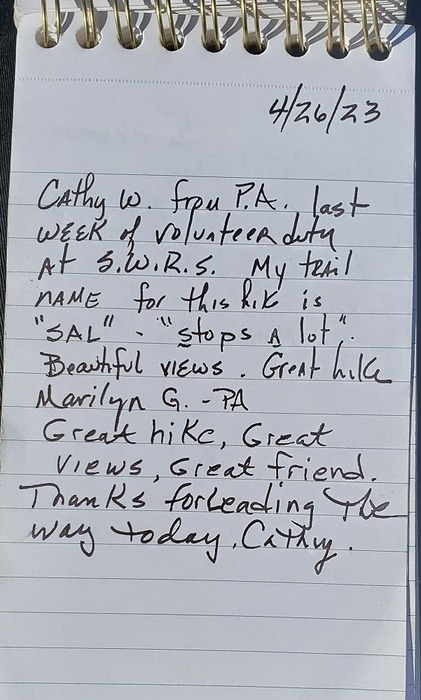 4/26/23
Cathy W. from P.A. last
WEEK of volunteer duty
At S.W.R.S. My trail
NAME for this hike is
"SAL" - "stops A lot".
Beautiful views. Great hike
Marilyn G. - PA
Great hike, Great
views, Great friend.
Thanks for Leading the
way today, Cathy.